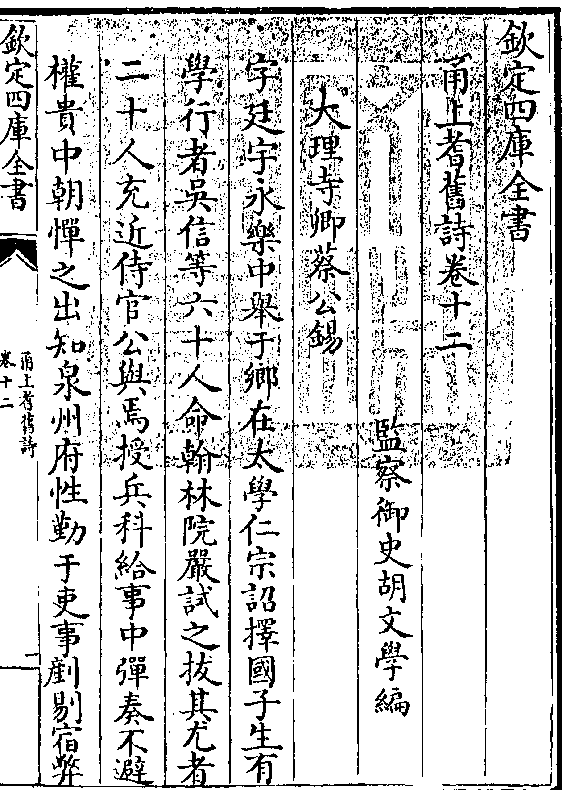 欽定四庫全書
甬上耆舊詩卷十二
監察御史胡文學編
大理寺卿蔡公錫
字廷宇永樂中舉于鄉在太學仁宗詔擇國子生有
學行者吳信等六十人命翰林院嚴試之拔其尤者
二十人充近侍官公與焉授兵科給事中彈奏不避
權貴中朝憚之出知泉州府性勤于吏事剷剔宿弊
欽定四庫全書
甬上耆舊詩
卷十二
一